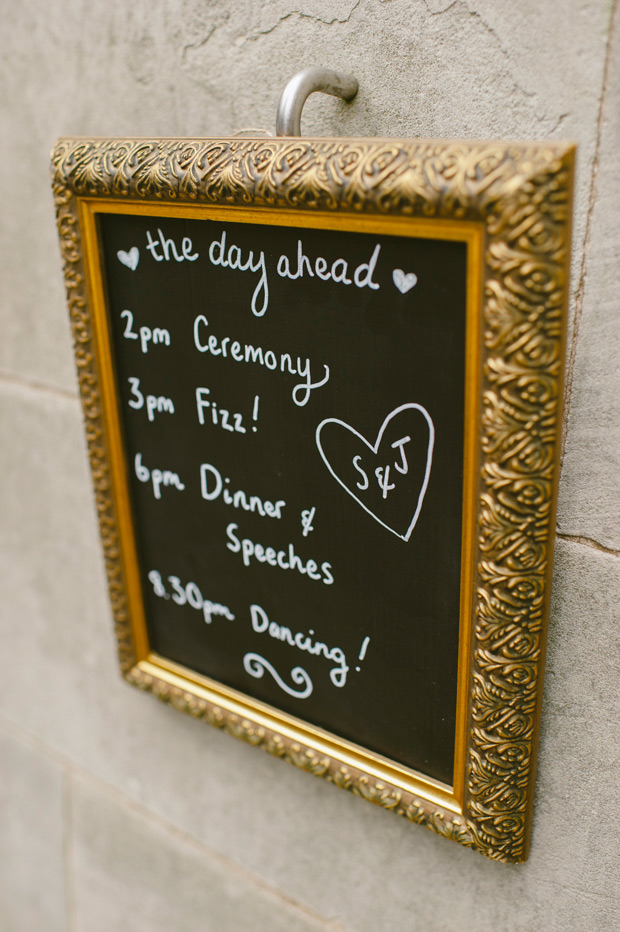 the day ahead
2pm Ceremony
3pm Fizz!
S & J
6pm Dinner &
Speeches
8.30pm Dancing!